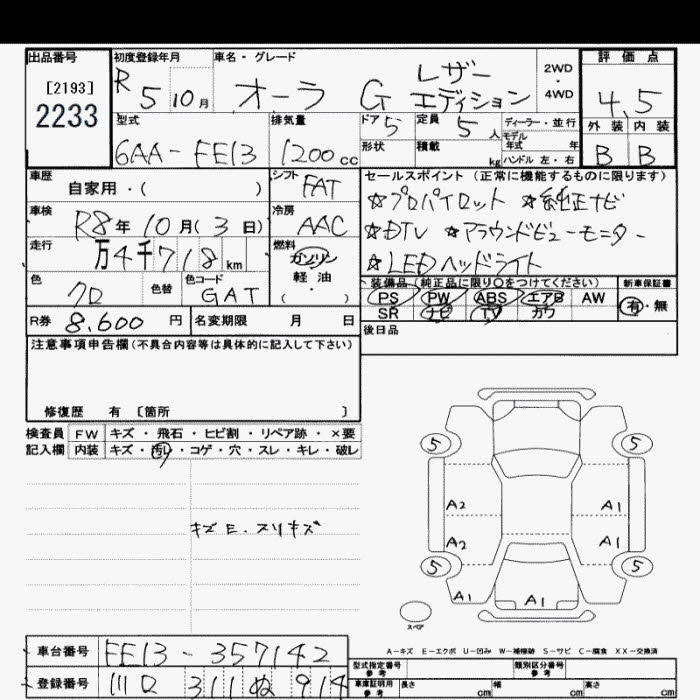 出品番号
[2193]
2233
初度登録年月
R 5 10月
車名・グレード
オーラ G レザーエディション
2WD・4WD
評価点
4.5
外装 内装
B B
型式
6AA-FE13
排気量
1200cc
ドア 5
形状
定員 5人
積載 kg
ディーラー・並行
モデル年式 年
ハンドル 左・右
車歴
自家用・( )
シフト FAT
車検
R8年10月(3日)
冷房 AAC
走行
万4千718km
燃料
ガソリン
軽・油
( ・ )
色
クロ
色替
色コード
GAT
R券 8,600円
名変期限 月 日
セールスポイント(正常に機能するものに限ります)
☆プロパイロット ☆純正ナビ
☆DTV ☆アラウンドビューモニター
☆LEDヘッドライト
装備品(純正品に限り○をつけてください)
PS PW ABS エアB AW
SR ナビ TV カワ
新車保証書
有・無
後日品
注意事項申告欄(不具合内容等は具体的に記入して下さい)
修復歴 有 [箇所 ]
検査員 FW キズ・飛石・ヒビ割・リペア跡・×要
記入欄 内装 キズ・汚れ・コゲ・穴・スレ・キレ・破レ
キズE.スリキズ
5 5
A2 A1
A2 A1
5 5
A1 A1
スペア
A-キズ E-エクボ U-凹み W-補修跡 S-サビ C-腐食 XX-交換済
車台番号 FE13-357142
登録番号 川口 311 ぬ 914
型式指定番号 参考
類別区分番号 参考
車庫証明用 参考 長さ cm 幅 cm 高さ cm